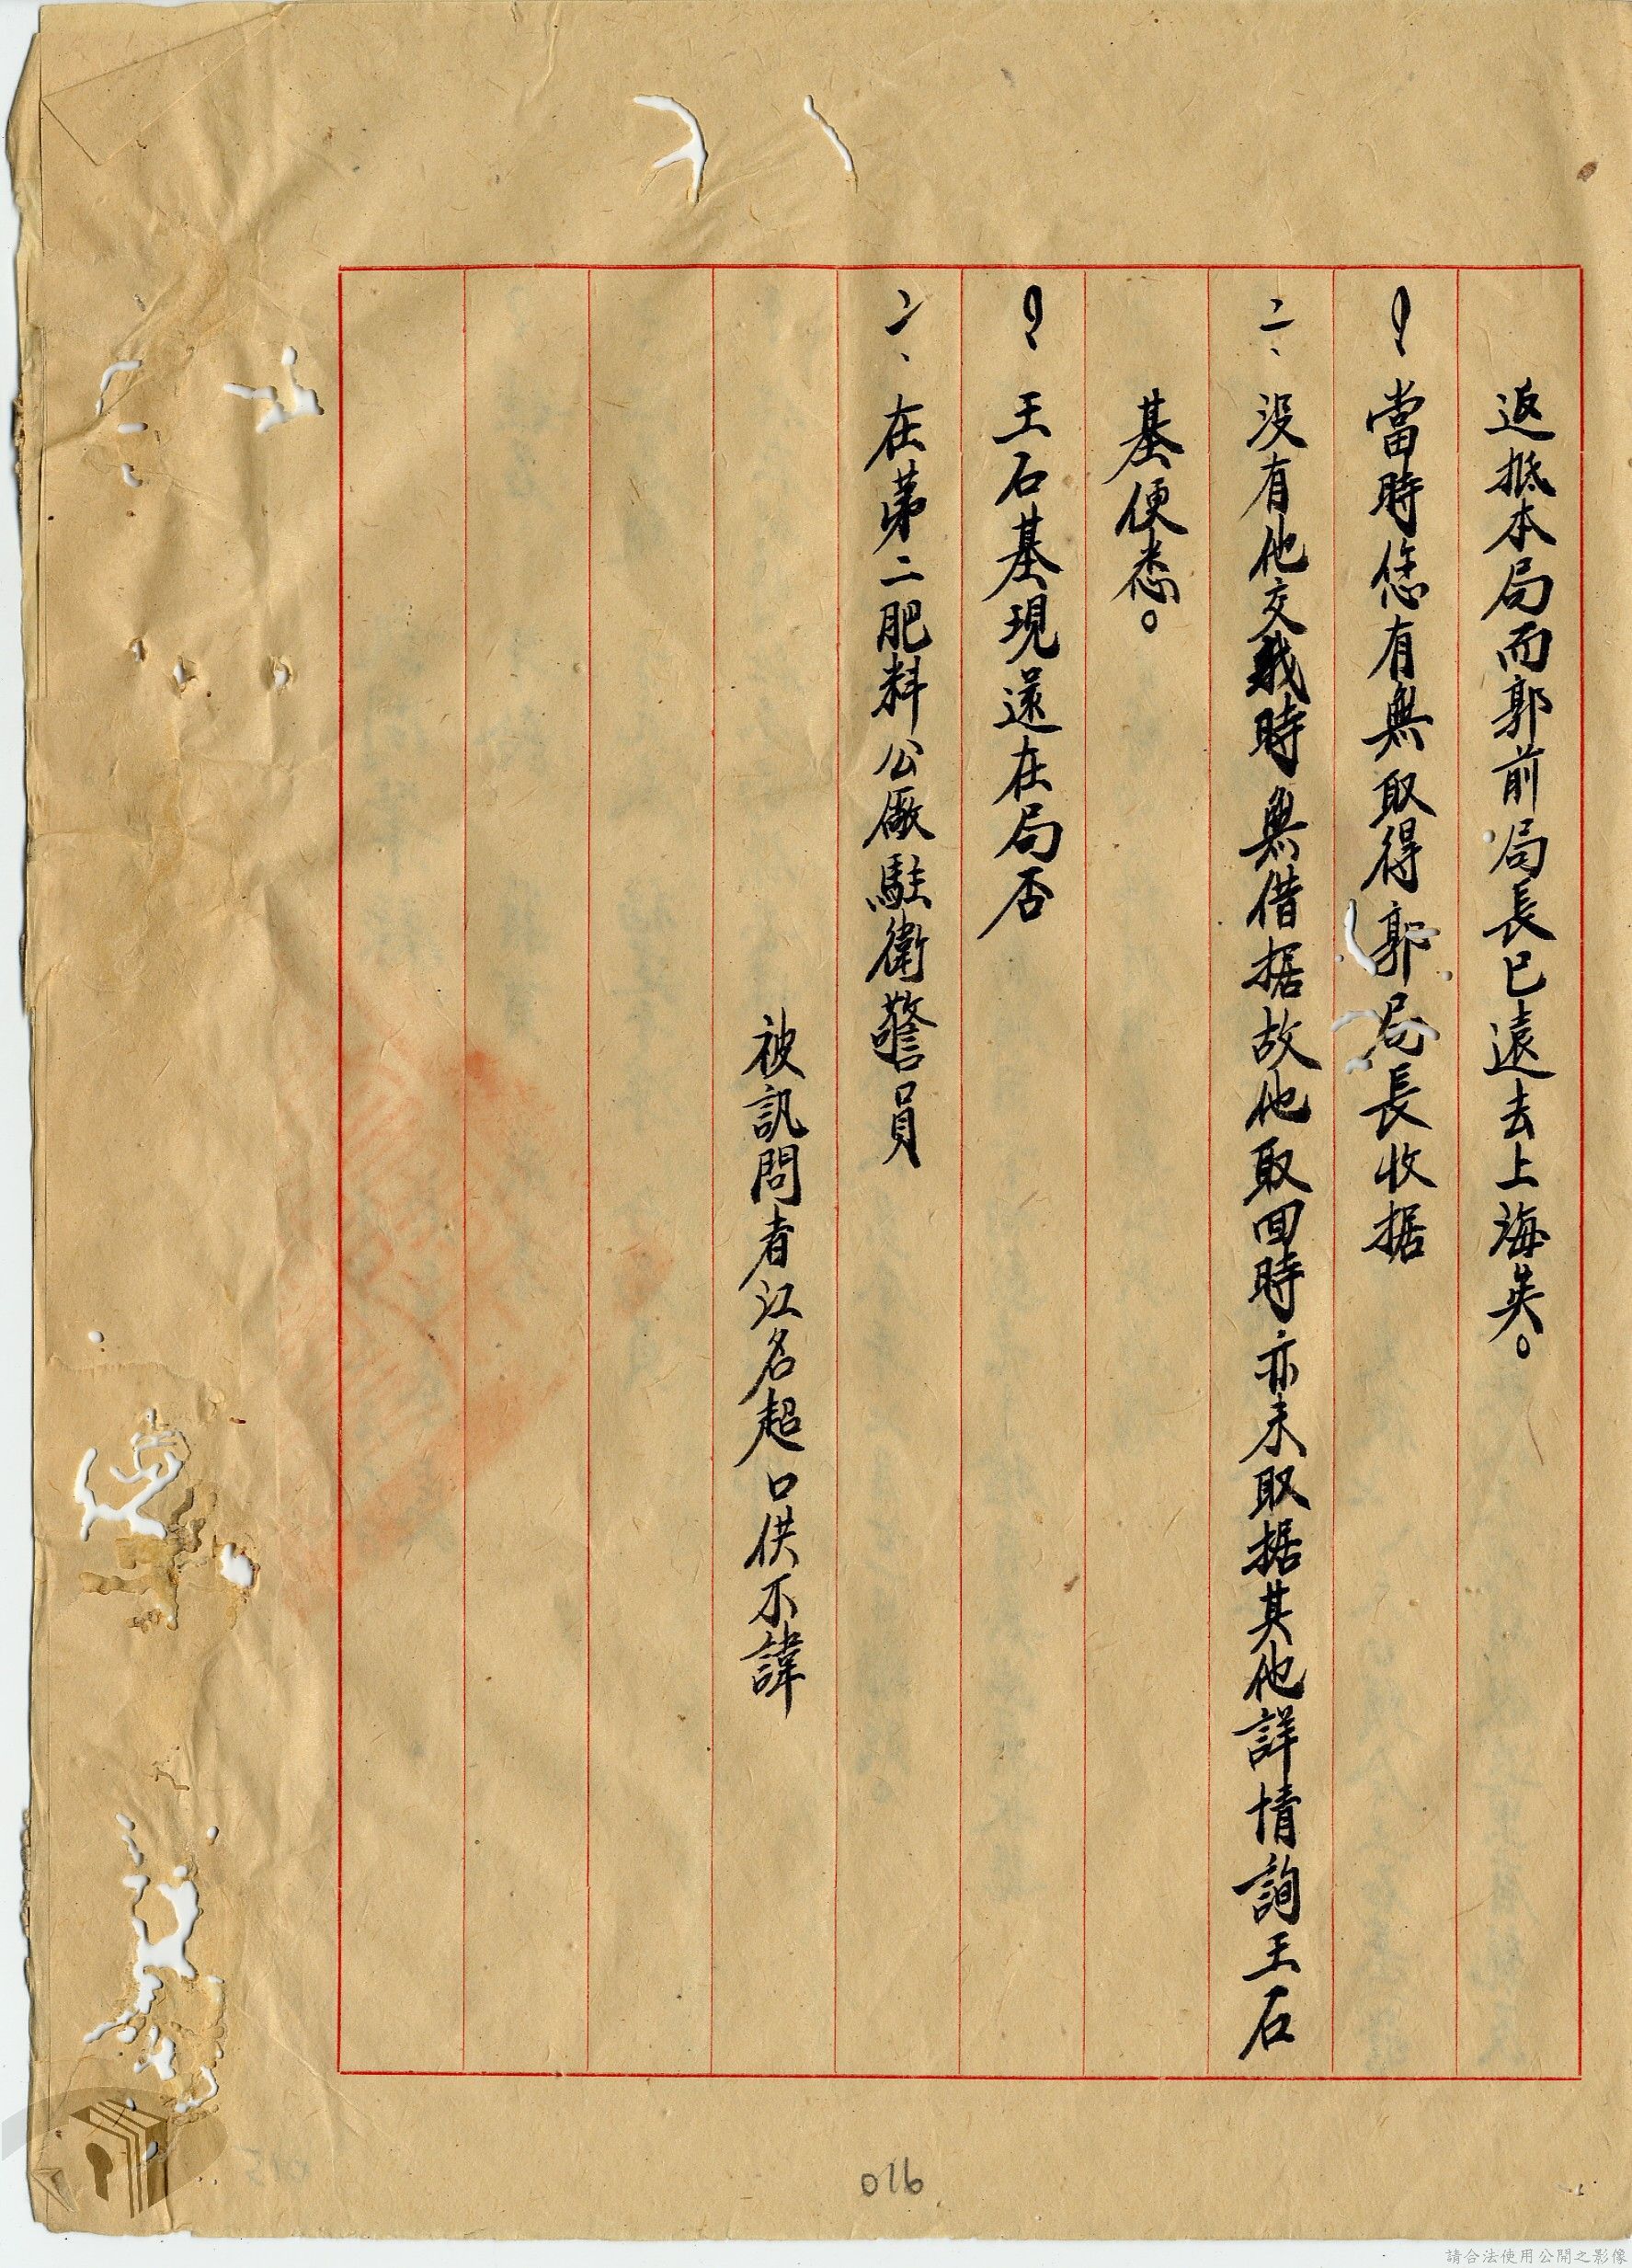 返抵本局而郭前局長已遠去上海矣。
？當時您有無取得郭局長收据
二、没有他交我時無借据故他取回時亦未取据其他詳情詢王石
基便悉。
？王石基現還在局否
二、在第二肥料公廠駐衛警員
被訊問者江名超口供不諱
016
015
請合法使用公開之影像